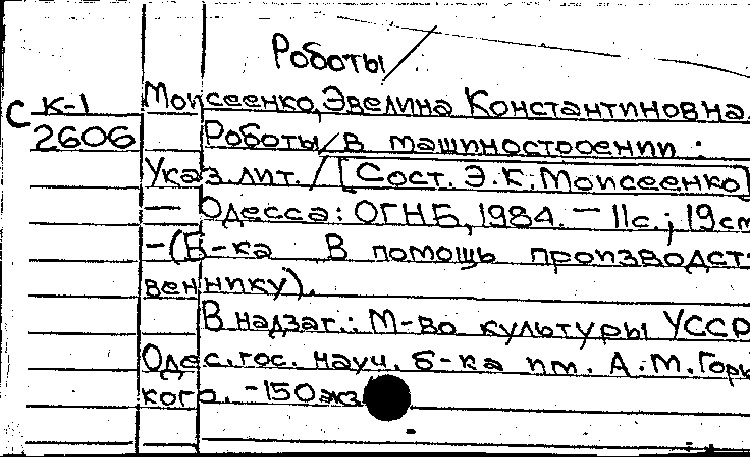 Роботы/
С К-1 Моисеенко, Эвелина Константиновна.
2606 Роботы/в машиностроении :
Указ. лит. / [Сост. Э.К. Моисеенко]
— Одесса: ОГНБ, 1984. — 11с.; 19см
-(Б-ка В помощь производст-
веннику).
В надзаг.: М-во культуры УССР
Одес. гос. науч. б-ка им. А.М. Горь
кого. -150экз